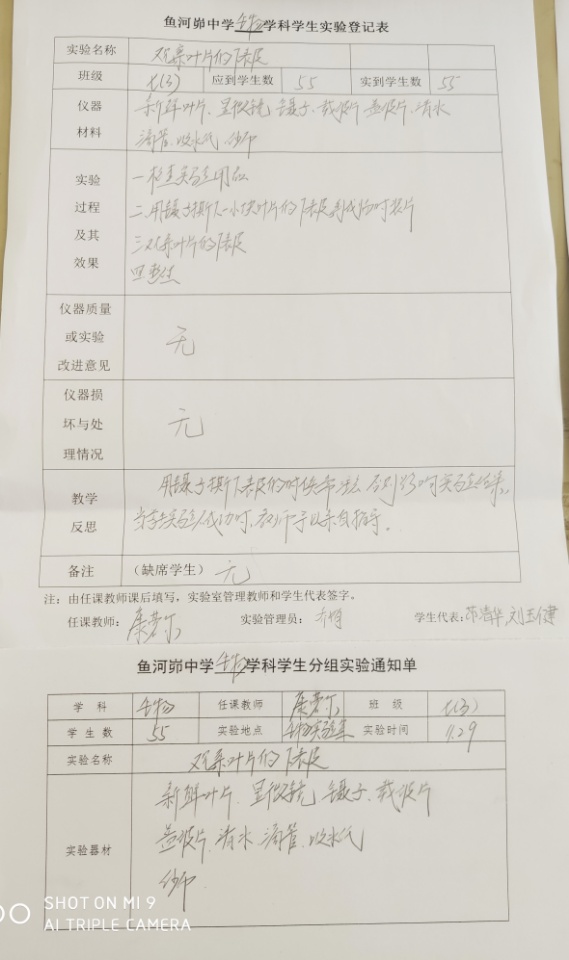 鱼河峁中学生物学科学生实验登记表
实验名称 观察叶片的下表皮
班级 七(3) 应到学生数 55 实到学生数 55
仪器材料 新鲜叶片、显微镜 镊子、载玻片 盖玻片、清水
滴管、吸水纸、纱布
实验过程及其效果 一 检查实验用品
二、用镊子撕下一小块叶片的下表皮制成临时装片
三、观察叶片的下表皮
四 总结
仪器质量或实验改进意见 无
仪器损坏与处理情况 无
教学反思 用镊子撕下表皮的时候
教师予以亲自指导。
备注 (缺席学生) 无
注：由任课教师课后填写，实验室管理教师和学生代表签字。
任课教师： 实验管理员： 学生代表：
鱼河峁中学生物学科学生分组实验通知单
学 科 生物 任课教师 班 级 七(3)
学 生 数 55 实验地点 生物实验室 实验时间
实验名称 观察叶片的下表皮
实验器材 新鲜叶片、显微镜 镊子、载玻片
盖玻片、清水 滴管、吸水纸
纱布
SHOT ON MI 9
AI TRIPLE CAMERA